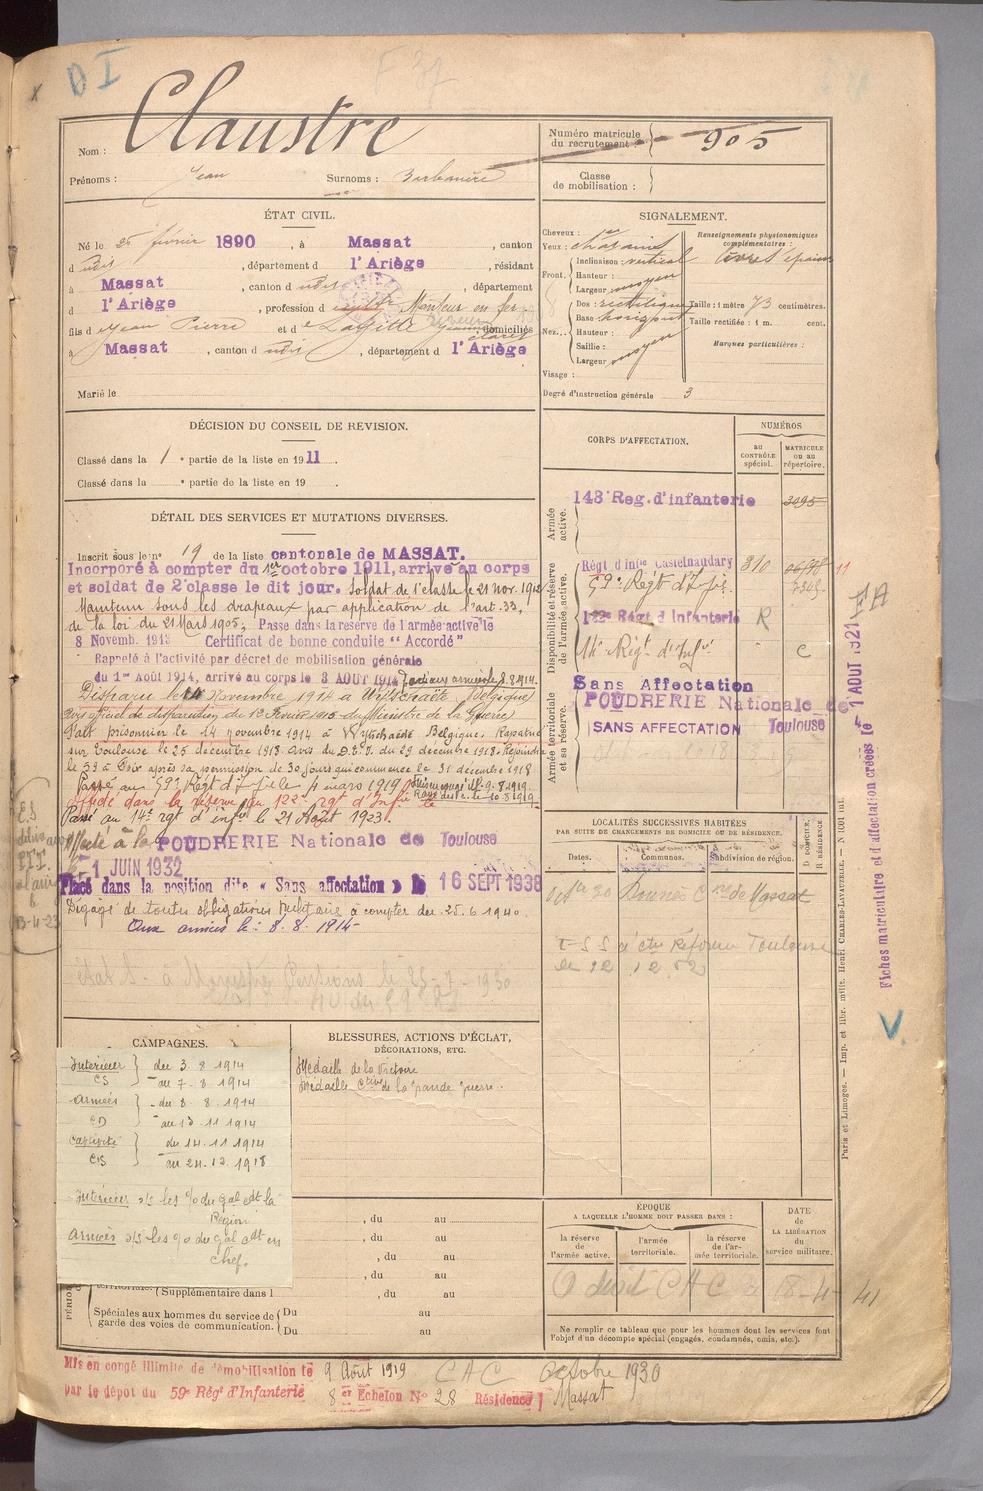 D I
Nom : Claustre
Prénoms : Jean Surnoms :
Numéro matricule du recrutement : 905
Classe de mobilisation :
ÉTAT CIVIL.
Né le 25 février 1890, à Massat, canton
d udit, département d l'Ariège, résidant
à Massat, canton d udit, département
d l'Ariège, profession d Monteur en fer
fils d Jean Pierre et d domiciliés
à Massat, canton d udit, département d l'Ariège
Marié le
SIGNALEMENT.
Cheveux :
Yeux : chatains
Front. Inclinaison : vertical
Hauteur :
Largeur : moyen
Nez. Dos : rectiligne
Base : horizont
Hauteur :
Saillie :
Largeur : moyen
Visage :
Renseignements physionomiques complémentaires :
Taille : 1 mètre 73 centimètres.
Taille rectifiée : 1 m. cent.
Marques particulières :
Degré d'instruction générale 3
DÉCISION DU CONSEIL DE REVISION.
Classé dans la 1e partie de la liste en 1911
Classé dans la e partie de la liste en 19
DÉTAIL DES SERVICES ET MUTATIONS DIVERSES.
Inscrit sous le n° 19 de la liste cantonale de MASSAT.
Incorporé à compter du 1er octobre 1911, arrivé au corps
et soldat de 2e classe le dit jour. Soldat de 1e classe le 21 nov. 1912
Maintenu sous les drapeaux par application de l'art. 33,
de la loi du 21 Mars 1905, Passe dans la réserve de l'armée active le
8 Novemb. 1913 Certificat de bonne conduite "Accordé"
Rappelé à l'activité par décret de mobilisation générale
du 1er Août 1914, arrivé au corps le 3 AOUT 1914
Disparu le 14 Novembre 1914 à Wytschaete (Belgique)
Avis officiel de disparition du 12 Février 1915 du Ministre de la Guerre
Fait prisonnier le 14 novembre 1914 à Wytschaete Belgique. Rapatrié
sur Toulouse le 25 décembre 1918. Avis du D.T.I. du 29 décembre 1918. Rejoindra
le 59 à Foix après sa permission de 30 jours qui commence le 31 décembre 1918
Passé au 59e Régt d'Inf le 4 mars 1919
Affecté dans la réserve du 122e rgt d'Infie
Passé au 14e rgt d'infie le 21 Août 1923
Affecté à la POUDRERIE Nationale de Toulouse
le 1 JUIN 1932
Placé dans la position dite « Sans affectation » le 16 SEPT 1938
Dégagé de toutes obligations militaire à compter du 25.6.1940.
Aux armées le : 8.8.1914
CORPS D'AFFECTATION.
NUMÉROS
AU CONTRÔLE spécial.
MATRICULE OU AU répertoire.
Armée active.
143e Reg. d'infanterie 3095
Disponibilité et réserve de l'armée active.
Régt d'infie Castelnaudary 810
59e Régt d'Infie.
122e Régt d'Infanterie R
14e Régt d'Infie C
Armée territoriale et sa réserve.
Sans Affectation
POUDRERIE Nationale de Toulouse
SANS AFFECTATION
LOCALITÉS SUCCESSIVES HABITÉES
PAR SUITE DE CHANGEMENTS DE DOMICILE OU DE RÉSIDENCE.
Dates. Communes. Subdivision de région. D DOMICILE, R RÉSIDENCE.
de Massat
Réforme Toulouse
le 12 12 52
Fiches matriculaire et d'affectation créées le 1 AOUT 1921
F A
V.
Paris et Limoges. — Imp. et libr. milit. Henri CHARLES-LAVAUZELLE. — N 1001 int.
CAMPAGNES.
Intérieur du 3.8.1914
CS au 7.8.1914
Armées du 8.8.1914
CD au 13.11.1914
Captivité du 14.11.1914
CS au 24.12.1918
Intérieur s/s les % du gal Cdt la
Région
Armées s/s les % du gal Cdt en
Chef.
BLESSURES, ACTIONS D'ÉCLAT,
DÉCORATIONS, ETC.
Médaille de la Victoire
Médaille Ctive de la grande guerre.
, du au
, du au
, du au
territoriale. (Supplémentaire dans l , du au
Spéciales aux hommes du service de garde des voies de communication. Du au
Du au
ÉPOQUE
A LAQUELLE L'HOMME DOIT PASSER DANS :
la réserve de l'armée active.
l'armée territoriale.
la réserve de l'armée territoriale.
DATE de LA LIBÉRATION du service militaire.
Ne remplir ce tableau que pour les hommes dont les services font l'objet d'un décompte spécial (engagés, condamnés, omis, etc.).
Mis en congé illimité de démobilisation le 9 Août 1919
CAC octobre 1930
par le dépôt du 59e Régt d'Infanterie 8er Échelon N° 28 Résidence Massat